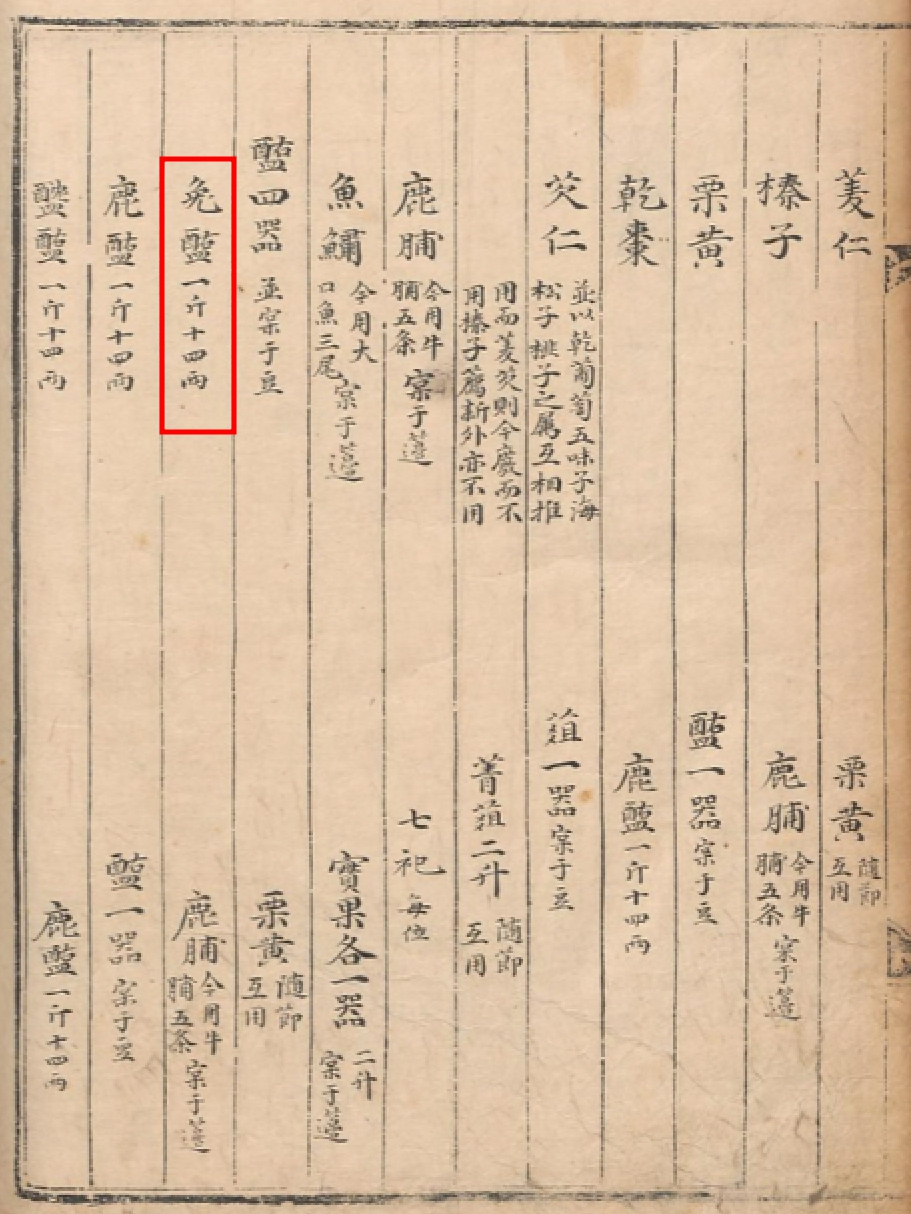 菱仁
榛子
栗黃
乾棗
芡仁 並以乾葡萄五味子海松子桃子之属互相推
用而菱芡則今廢而不用榛子薦新外亦不用
鹿脯 今用牛脯五条 宲于籩
魚鱐 今用大口魚三尾 宲于籩
醢四器 並宲于豆
兔醢 一斤十四兩
鹿醢 一斤十四兩
醓醢 一斤十四兩
栗黃 随節互用
鹿脯 今用牛脯五条 宲于籩
醢一器 宲于豆
鹿醢 一斤十四兩
菹一器 宲于豆
菁菹二升 随節互用
七祀 每位
實果各一器 二升宲于籩
栗黃 随節互用
鹿脯 今用牛脯五条 宲于籩
醢一器 宲于豆
鹿醢 一斤十四兩